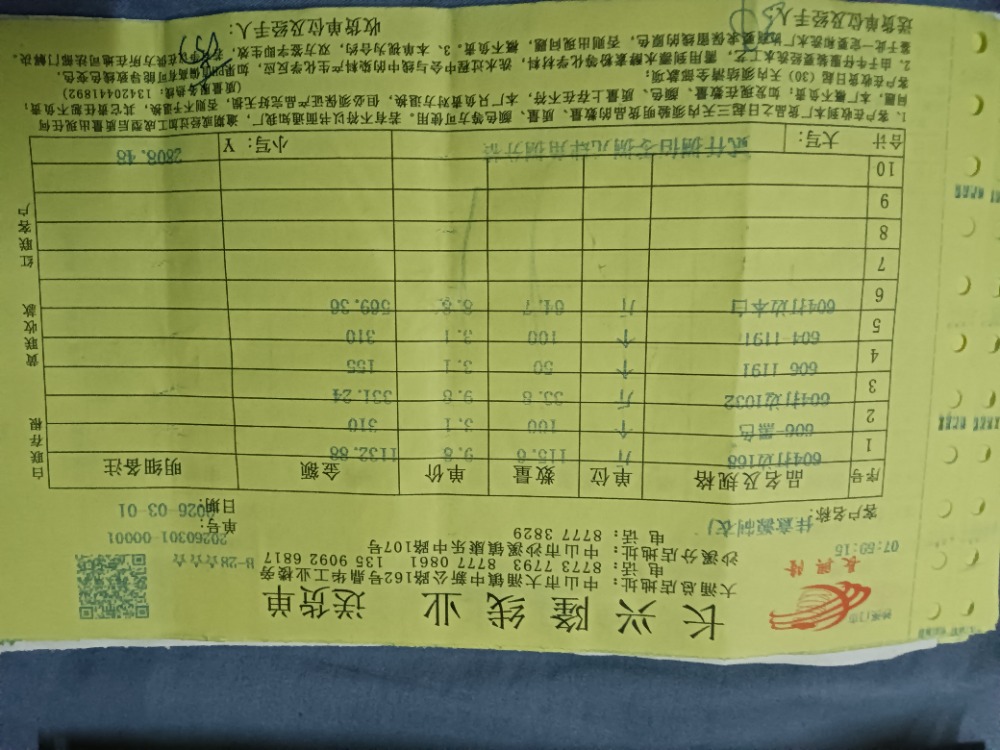 长兴隆线业 送货单
长兴隆
大涌总店地址：中山市大涌镇中新公路162号鼎华工业楼旁
电话：8773 7793 8777 0861 135 9092 6817
沙溪分店地址：中山市沙溪镇康乐中路107号
电话：8777 3829
B-28☆☆☆☆
07:59:15
单号：20260301-00001
客户名称：佳意源制衣厂
日期：2026-03-01
序号 品名及规格 单位 数量 单价 金额 明细备注
1 604打边168 斤 115.6 9.8 1132.88
2 606 黑色 个 100 3.1 310
3 604打边1032 斤 33.8 9.8 331.24
4 606 1191 个 50 3.1 155
5 604 1191 个 100 3.1 310
6 604打边本白 斤 64.7 8.8 569.36
7
8
9
10
合计 大写： 贰仟捌佰零捌元肆角捌分 小写：¥ 2808.48
白联存根 黄联收款 红联客户
1、客户在收到本厂货品之日起三天内须验明货品的数量、质量、颜色等方可使用。若有不符以书面通知我厂，逾期或经过加工成型后质量出现任何
问题，本厂概不负责；如发现在数量、颜色、质量上存在不符，本厂只负责对方退换，但必须保证产品完好无损，否则不予退换，其它责任概不负责；
客户在收货日起（30）天内须结清全部款项； （质量服务热线：13420441892）
2、由于牛仔服装要经洗水工艺，需用到漂水酵素粉等化学材料，洗水过程中会与线中的染料产生化学反应，如果PH值偏高可能导致线色变色，
送货单位及经手人：
收货单位及经手人：